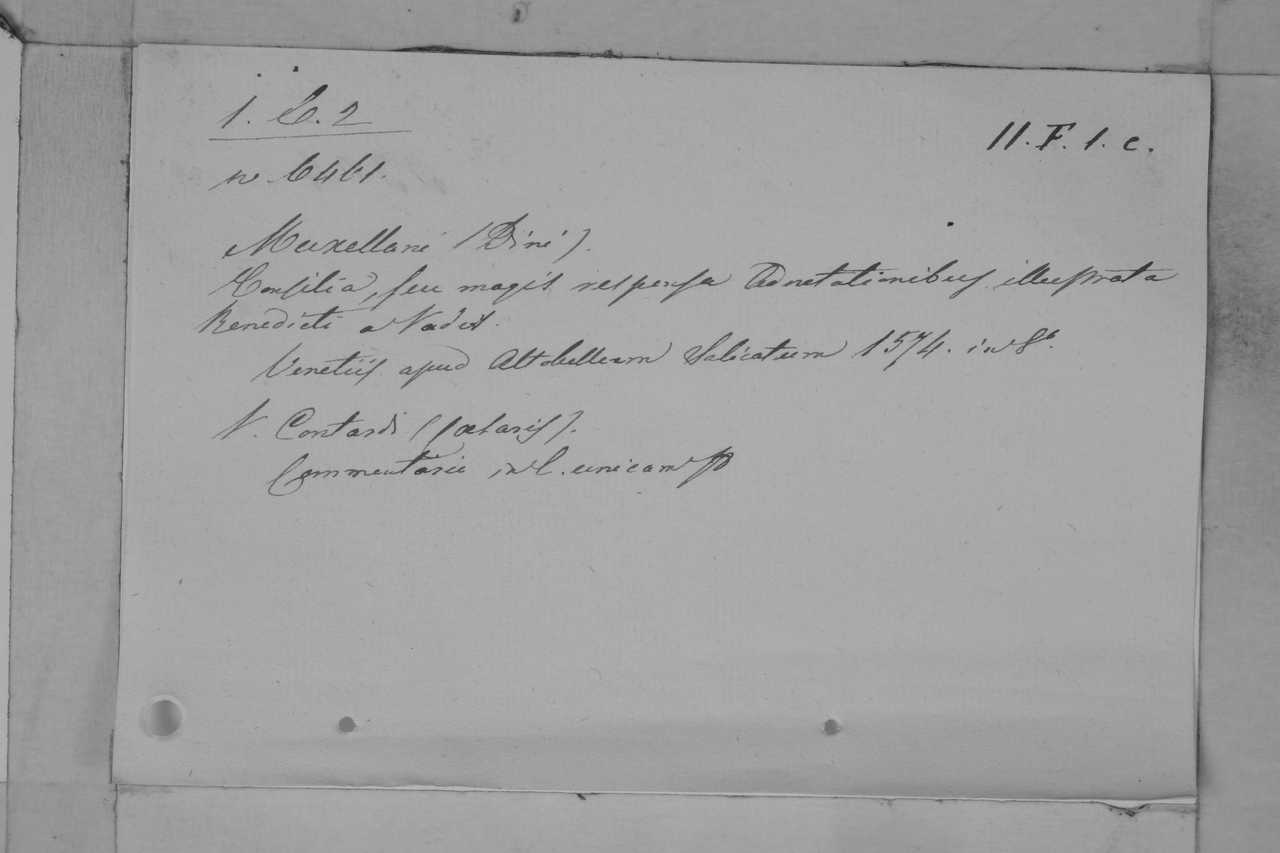 1. C. 2
11. F. 1. c.
n. 6461.
Muxellani (Dini).
Consilia, seu magis responsa Adnotationibus illustrata
Benedicti a Vadis.
Venetiis apud Altobellum Salicatum 1574. in 8º.
V. Contardi (
Commentarii in l. unicam